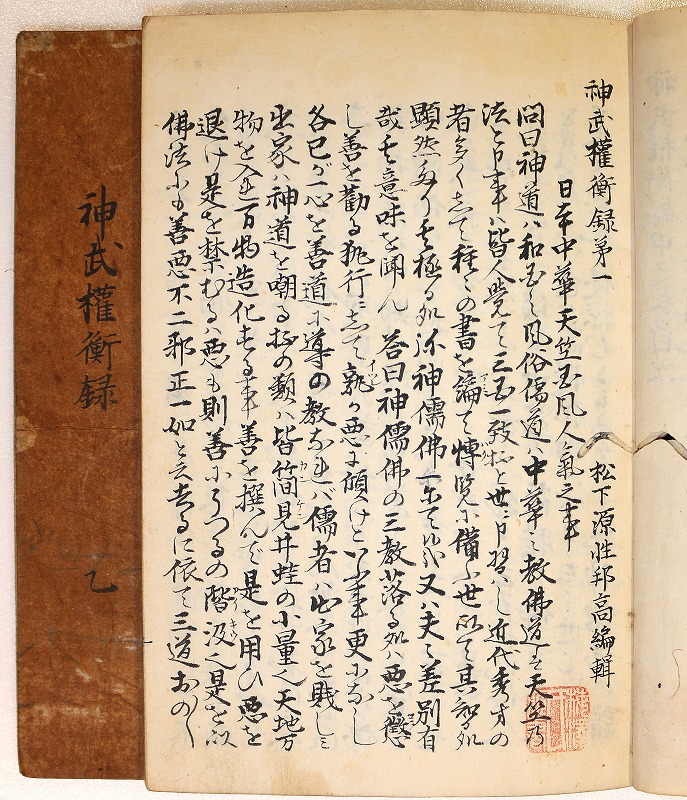 神武權衡録第一
松下源性邦高編輯
日本中華天竺国風人氣之事
問曰神道ハ和国之風俗儒道ハ中華之教佛道ハ天竺乃
法と申事ハ皆人覚て三国一致抔と世に申習ハし近代秀才の
者多くして種々の書を編て博覧に備ふ世以て其智処
顕然たり其極る処ハ神儒佛一にてハ又ハ夫々差別有
哉其意味を聞ん 答曰神儒佛の三教落る処ハ悪を懲
し善を勧る執行にして孰か悪に傾けといふ事更になし
各己が一心を善道に導の教なれバ儒者ハ出家を賎しミ
出家ハ神道を嘲る抔の類ハ皆管見井蛙の小量也天地万
物を入れ百物造化する事善を撰んで是を用ひ悪を
退け是を禁むるハ悪も則善にうつるの階級也是を以
佛法にも善悪不二邪正一如と云去るに依て三道おの〱
神武權衡録
乙